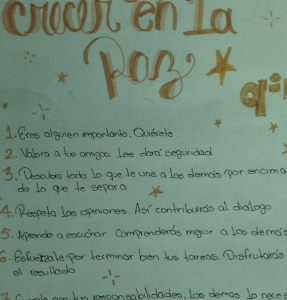 crecer en la
Paz
1. Eres alguien importante. Quiérete
2. Valora a tus amigos. Les dará seguridad
3. Descubre todo lo que te une a los demás por encima
de lo que te separa
4. Respeta las opiniones. Así contribuirás al diálogo
5. Aprende a escuchar. Comprenderás mejor a los demás
6. Esfuerzate por terminar bien tus tareas. Disfrutarás
el resultado
7. Cumple con tus responsabilidades, los demás lo nece